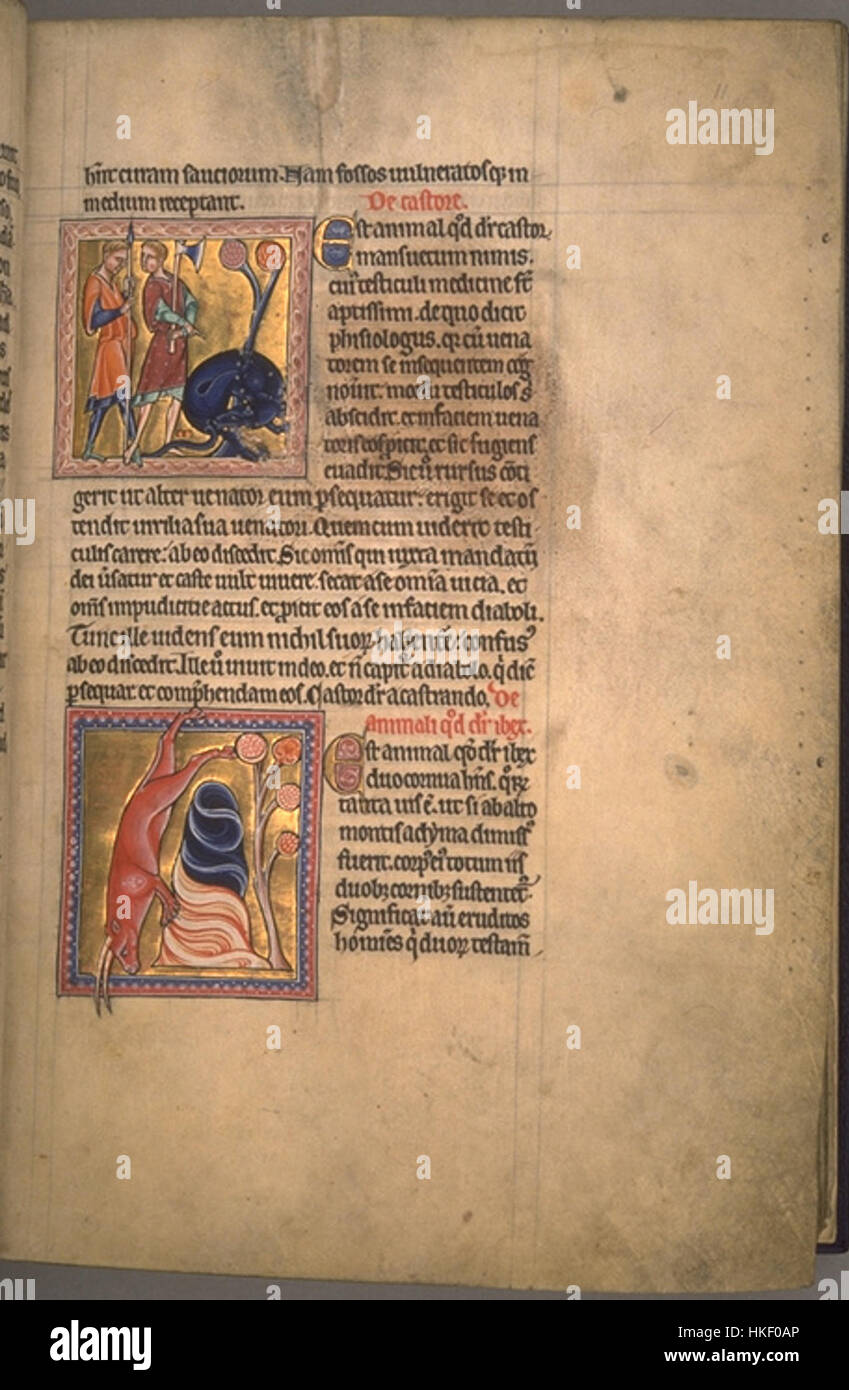 hn̄t curam sauciorum. Nam fossos vulneratosq; in
medium receptant. De castore.
Est animal qd̓ dr̄ castor
mansuetum nimis.
cui᷒ testiculi medicine st̄
aptissimi. de quo dicit
phisiologus. qr cū uena
torem se insequentem cog
nouit. morsu testiculos s̄
abscidit. et in faciem uena
toris eos p̄icit. et sic fugiens
euadit. Sic ū rursus cōti
gerit ut alter uenator eum ꝑsequatur. erigit se et os
tendit uirilia sua uenatori. Quem cum uiderit testi
culis carere: ab eo discedit. Sic omīs qui iuxta mandatū
dei ūsatur et caste uult uiuere. secat a se omīa uicia. et
omīs impudicitie actus. et ꝓicit eos a se in faciem diaboli.
Tunc ille uidens eum nichil suoꝝ habentē: confus᷒
ab eo discedit. Ille ū uiuit in deo. et n̄ capit̄ a diabolo. q̇ dic̄
ꝑsequar et comp̄hendam eos. Castor dr̄ a castrando. De
animali qd̓ dr̄ ibex.
Est animal qd̓ dr̄ ibex
duo cornua hn̄s. qoꝝ
tanta uis ē. ut si ab alto
montis ad yma dimiss᷒
fuerit. corp᷒ ei᷒ totum iis
duob; cornib; sustentet᷒.
Significat aū eruditos
homīes q̇ duoꝝ testam̄
11
alamy
Image ID: HKF0AP
www.alamy.com